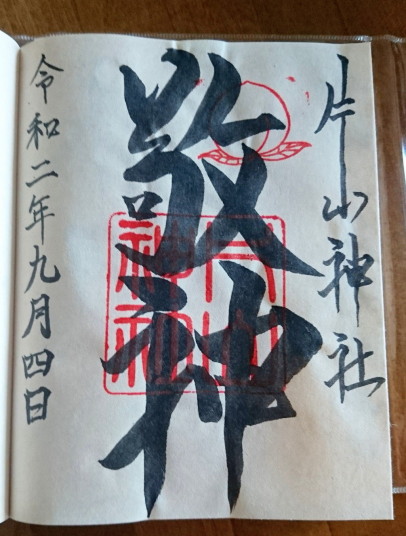 片山神社
敬神
片山
神社
令和二年九月四日